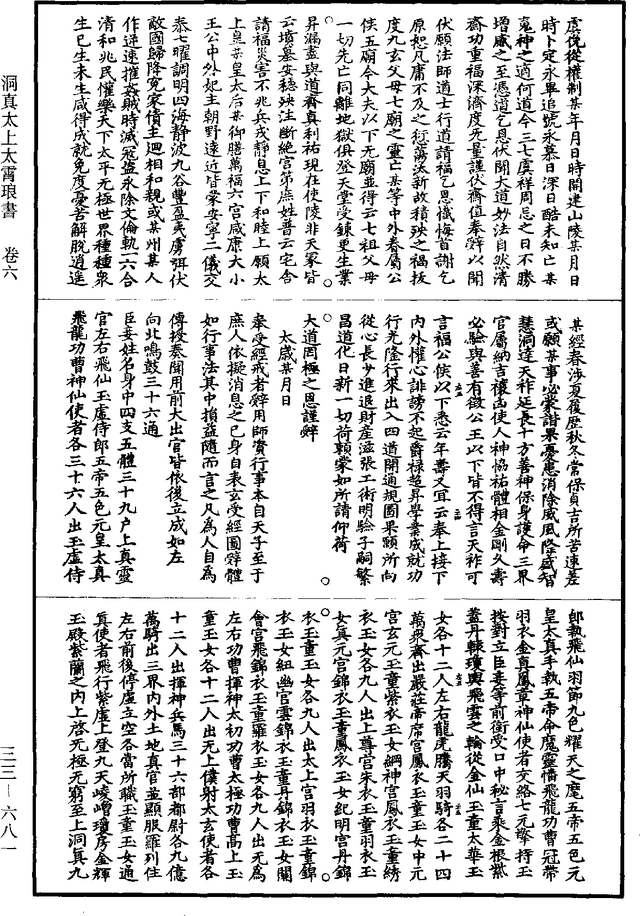 虔恱從權制某年月日時開建山陵某月日
時卜定永畢追號永慕日深日酷未知亡某
鬼神之適何道今三七虞祥周忌之日不勝
増感之至憑道乞恩伏聞大道妙法自然清
齋功重福深濟度无量謹伏齋值奉辭以聞
伏願法師道士行道請福乞恩懺悔首謝乞
原恕凡庸不及之愆蕩汰新故積殃之禍拔
度九玄父母七廟之靈亡某等中外眷屬公
侯五廟今大夫以下无廟並得云七祖父母
一切先亡同離地獄俱登天堂受鍊更生業
昇漏盡與道齊真利祐現在使陵非天冢皆
云墳墓安穏殃注斷絶宮第庶姓普云宅舎
請福災害不兆兵戎靜息上下和睦上願太
上皇某皇太后某御膳萬福六宮咸康大小
王公中外妃主朝野遠近皆蒙安寧二儀交
泰七曜調明四海静波九谷豐盈夷虜弭伏
敵國歸降冤家債主迴相和親或某州某人
作逆速摧姦賊時滅冦盗永除文倫軌一六合
清和兆民懽樂天下太平元極世界種種衆
生已生未生咸得成就免度憂苦解脫逍遥
某經春渉夏復歴秋冬當保貞吉所苦速差
或願某事必蒙諧果憂患消除威風降盛智
慧洞達天祚延長十方善神保身護命三界
官屬納吉禳凶使人神恊祐體相金剛久壽
必驗與善有徵公王以下皆不得言天祚可
言福公侯以下悉云年壽又宜云奉上接下
内外懽心誹謗不起爵禄超昇學業成就功
行光隆行來出入四道開通規圖果願所向
從心長少進退財産滋張工術明驗子嗣繁
昌道化日新一切荷頼蒙如所請仰荷
大道罔極之恩謹辤
太歲某月日
奉受經戒者辤用師賫行事本自天子至于
庶人依擬消息之已身自表玄受經圖辤體
如行事法其中損益隨而言之凡為人自為
傳授奏聞用前大出官皆依後立成如左
向北鳴鼓三十六通
臣妾姓名身中四支五體三十九戶上真靈
官左右飛仙玉虛侍郎五帝五色元皇太真
飛龍功曹神仙使者各三十六人出玉虛侍
郎執飛仙羽節九色耀天之麾五帝五色元
皇太真手執五帝命魔靈幡飛龍功曹冠帶
羽衣金真鳳章神仙使者交絡七元擎持玉
按對立臣妾等前銜受口中秘言乘金根紫
蓋丹輧瓊輿飛雲之輪從金仙玉童太華玉
女各十二人左右龍虎騰天羽騎各二十四
萬衆齊出嚴莊帝席宮鳳衣玉童玉女中元
宮玄元玉童紫衣玉女綱神宮鳳衣玉童綉
衣玉女各九人出上尊宮朱衣玉童羽衣玉
女真元宮錦衣玉童鳳衣玉女紀明宮丹錦
衣玉童玉女各九人出太上宮羽衣玉童錦
衣玉女紐幽宮雲錦衣玉童丹錦衣玉女關
會宮飛錦衣玉童羅衣玉女各九人出无為
左右功曹揮神太初功曹太極功曹髙上玉
童玉女各十二人出无上僕射太玄使者各
十二人出揮神兵馬三十六部都尉各九億
萬騎出三界内外土地真官並顯服羅列住
左右前後停虛立空各當所職玉童玉女通
真使者飛行紫虛上登九天崚嶒瓊房金輝
玉殿紫蘭之内上啓无極无窮至上洞真九
洞真太上太霄琅書　卷六
三三—六八一